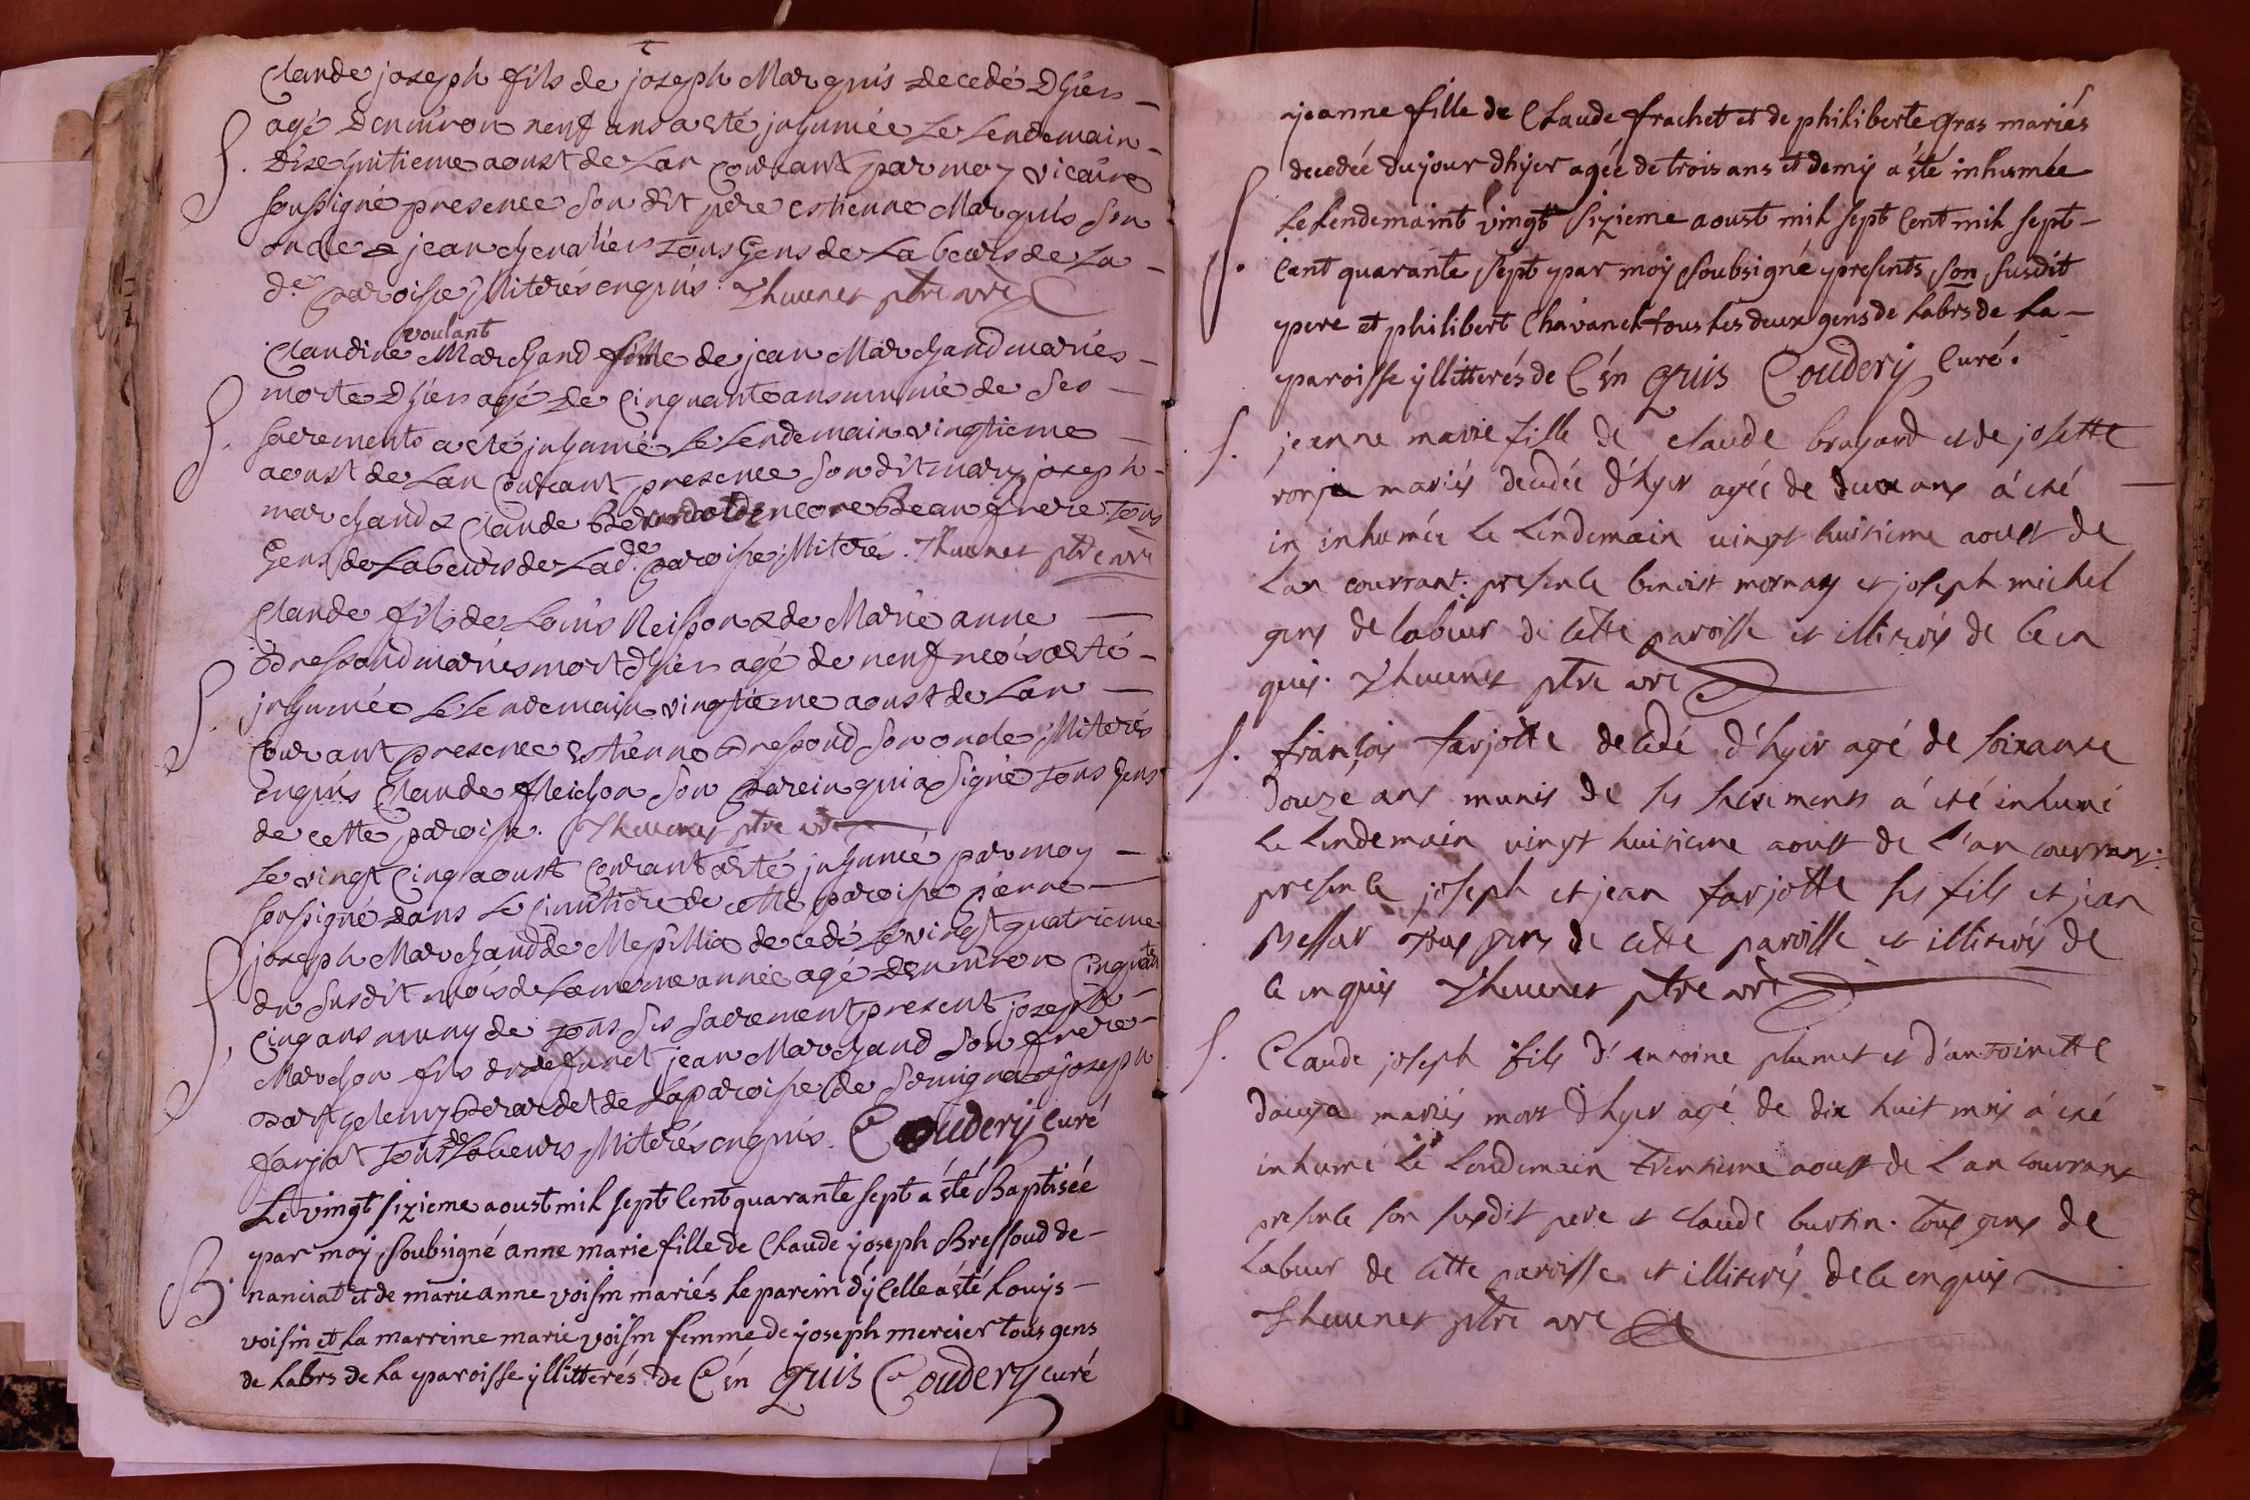 Claude joseph fils de joseph Marquis decedé dhier
S. agé denviron neuf ans a esté inhumée le lendemain
dixe huitieme aoust de lan courant par moy vicaire
soussigné presence son dit pere estienne Marquis son
oncle & jean chevaliers tous gens de labeurs de la
de paroisse illiterés enquis. Thevenet ptre vre
voulant
Claudine Marchand fille de jean Marchand mariés
morte dhier agé de cinquante ans munie de ses
S. sacrements a esté inhumé le lendemain vingtieme
aoust de lan courant presence son dit mary joseph
marchand & Claude encore beau frere tous
gens de labeurs de lad.de paroisse illiterés. Thevenet ptre vre
Claude fils de Louis Reison & de Marie anne
bressoud mariés mort dhier agé de neuf mois a esté
S. inhumée le lendemain vingtieme aoust de lan
courant presence estienne bressoud son oncle illiterés
enquis Claude Reichon son parein qui a signé tous gens
de cette paroisse. Thevenet ptre vre
le vingt cinq aoust courant a esté inhumé par moy
soussigné dans le cimitiere de cette paroisse pierre
joseph Marchand de Mepillia decedé le vingt quatrieme
S. du susdit mois de la meme année agé denviron cinquante
cinq ans muny de tous ses sacrement present joseph
Marchon fils du defunct jean Marchand son frere
Barthelemy berardet de la paroisse de joseph
farjat tous de labeurs illiterés enquis. Coudery Curé
Le vingt sizieme aoust mil sept cent quarante sept a été Baptisée
par moy soubsigné anne marie fille de Claude joseph Bressoud de
B. nanciat et de marie anne voisin mariés le parein d'ycelle a été Louys
voisin et la marreine marie voisin femme de joseph mercier tous gens
de labrs de la paroisse yllitterés de Ce en quis Coudery curé
jeanne fille de Claude frachet et de philiberte gras mariés
decedée du jour dhyer agée de trois ans et demy a été inhumée
S. le lendemaint vingt sizieme aoust mil sept cent mil sept
cent quarante sept par moy soubsigné presents son susdit
pere et philibert Chavanel tous les deux gens de labrs de la
paroisse yllitterés de Ce en quis Coudery Curé.
S. jeanne marie fille de claude brayard et de josette
ronja mariés decedée d'hyer agée de deux ans a été
in inhumée le lendemain vingt huitieme aoust de
l'an courrant. presence benoist mornay et joseph michel
gens de labeur de cette paroisse et illiterés de ce en
quis. Thevenet ptre vre
S. françois farjotte decedé d'hyer agé de soixante
douze ans munis de ses sacrements a été inhumé
le lendemain vingt huitieme aoust de l'an courrant.
presence joseph et jean farjotte ses fils et jean
tous gens de cette paroisse et illiterés de
ce en quis Thevenet ptre vre
S. Claude joseph fils d'antoine plumet et d'antoinette
douza mariés mort d'hyer agé de dix huit mois a été
inhume le lendemain trentieme aoust de l'an courrant
presence son susdit pere et claude burtin. tous gens de
labeur de cette paroisse et illiterés de ce en quis
Thevenet ptre vre